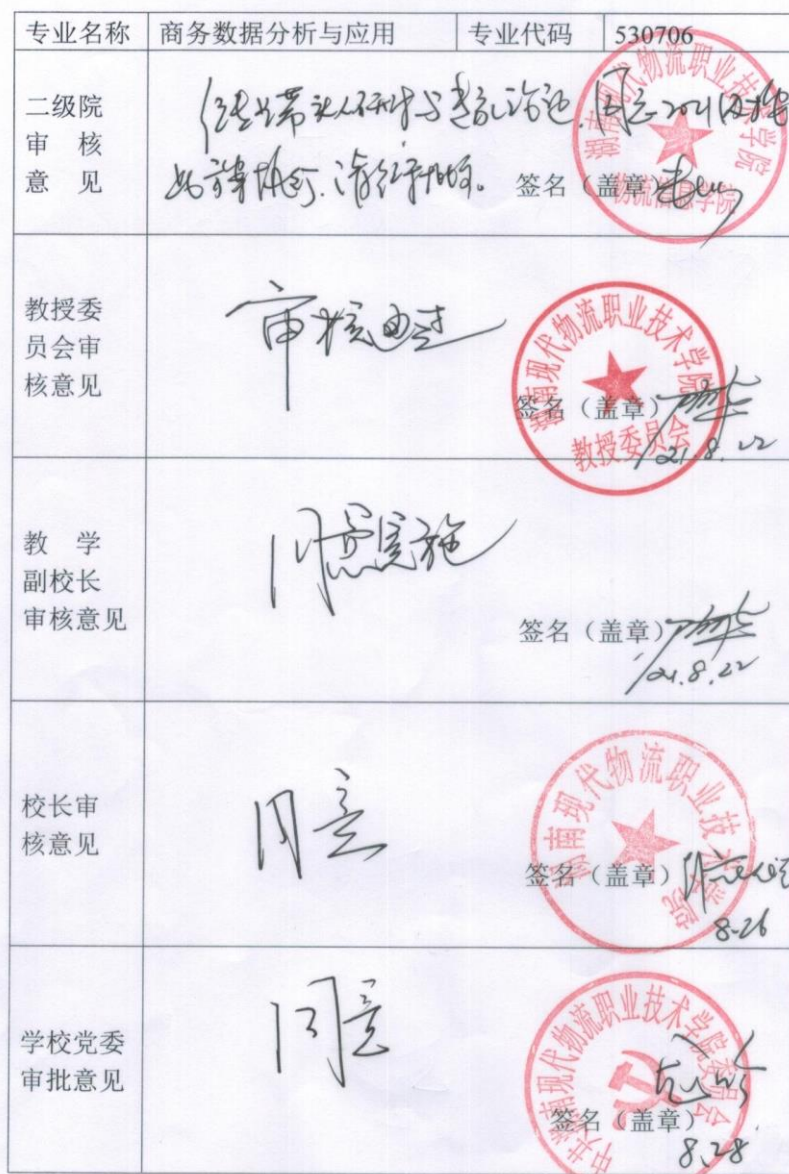 专业名称 商务数据分析与应用 专业代码 530706
二级院
审 核
意 见
同意2021
签名（盖章）
湖南现代物流职业技术学院
物流信息学院
教授委
员会审
核意见
审核通过
签名（盖章）
21.8.22
湖南现代物流职业技术学院
教授委员会
教 学
副校长
审核意见
同意实施
签名（盖章）
21.8.22
校长审
核意见
同意
签名（盖章）
8-26
湖南现代物流职业技术学院
学校党委
审批意见
同意
签名（盖章）
8.28
中共湖南现代物流职业技术学院委员会